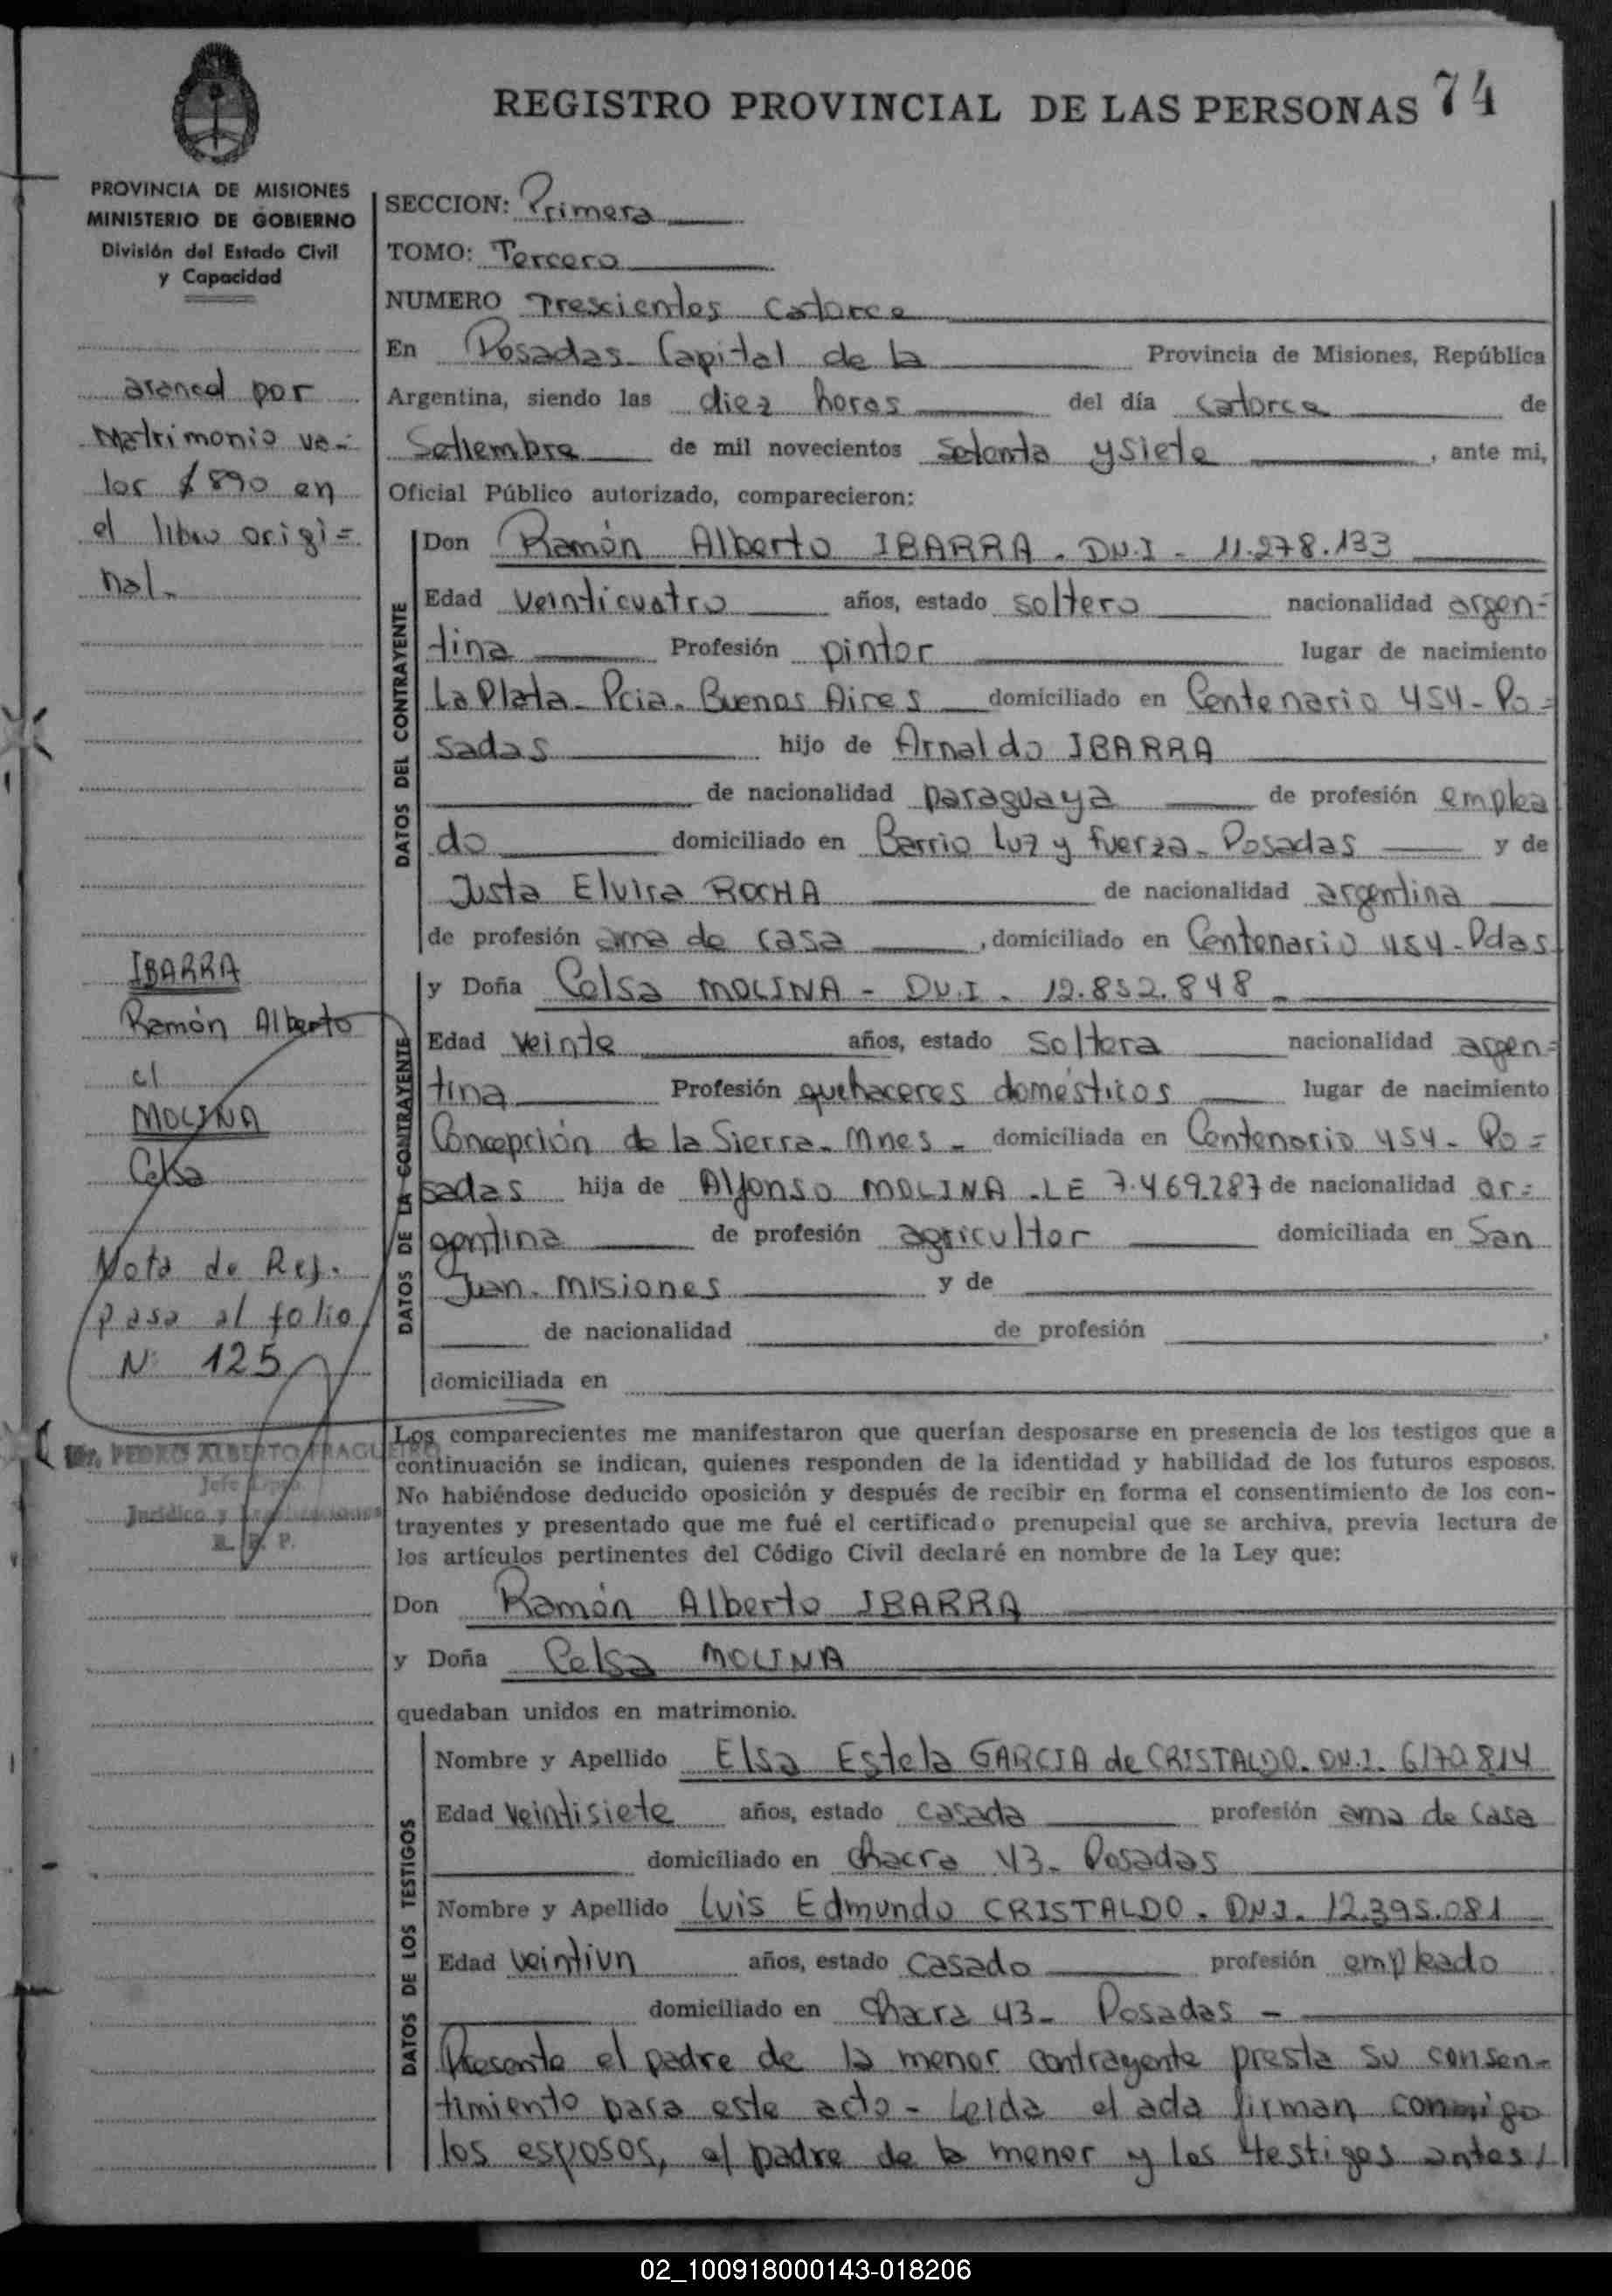 REGISTRO PROVINCIAL DE LAS PERSONAS 74
PROVINCIA DE MISIONES
MINISTERIO DE GOBIERNO
División del Estado Civil
y Capacidad
arancel por
Matrimonio va=
lor $890 en
el libro origi=
nal-
IBARRA
Ramón Alberto
c/
MOLINA
Celsa
Nota de Ref.
pasa al folio
N° 125
Dr. PEDRO ALBERTO FRAGUEIRO
Jefe Dpto.
Jurídico y
R. P. P.
SECCION: Primera
TOMO: Tercero
NUMERO Trescientos Catorce
En Posadas Capital de la Provincia de Misiones, República
Argentina, siendo las diez horas del día catorce de
Setiembre de mil novecientos setenta y siete, ante mi,
Oficial Público autorizado, comparecieron:
DATOS DEL CONTRAYENTE
Don Ramón Alberto IBARRA - DN.I - 11.278.133
Edad veinticuatro años, estado soltero nacionalidad argen=
tina Profesión pintor lugar de nacimiento
La Plata - Pcia. Buenos Aires domiciliado en Centenario 454 - Po=
sadas hijo de Arnaldo IBARRA
de nacionalidad paraguaya de profesión emplea
do domiciliado en Barrio Luz y Fuerza - Posadas y de
Justa Elvira ROCHA de nacionalidad argentina
de profesión ama de casa, domiciliado en Centenario 454 - Pdas
DATOS DE LA CONTRAYENTE
y Doña Celsa MOLINA - DN.I - 12.852.848 -
Edad veinte años, estado soltera nacionalidad argen=
tina Profesión quehaceres domésticos lugar de nacimiento
Concepción de la Sierra - Mnes - domiciliada en Centenario 454 - Po=
sadas hija de Alfonso MOLINA - LE 7.469.287 de nacionalidad ar=
gentina de profesión agricultor domiciliada en San
Juan - misiones y de
de nacionalidad de profesión
domiciliada en
Los comparecientes me manifestaron que querían desposarse en presencia de los testigos que a
continuación se indican, quienes responden de la identidad y habilidad de los futuros esposos.
No habiéndose deducido oposición y después de recibir en forma el consentimiento de los con-
trayentes y presentado que me fué el certificado prenupcial que se archiva, previa lectura de
los artículos pertinentes del Código Civil declaré en nombre de la Ley que:
Don Ramón Alberto IBARRA
y Doña Celsa MOLINA
quedaban unidos en matrimonio.
DATOS DE LOS TESTIGOS
Nombre y Apellido Elsa Estela GARCIA de CRISTALDO - DN.I. 6170814
Edad veintisiete años, estado casada profesión ama de casa
domiciliado en Chacra 43 - Posadas
Nombre y Apellido Luis Edmundo CRISTALDO - DNI - 12.395.081
Edad veintiun años, estado casado profesión empleado
domiciliado en Chacra 43 - Posadas -
Presente el padre de la menor contrayente presta su consen-
timiento para este acto - Leida el acta firman conmigo
los esposos, el padre de la menor y los testigos antes/
02_100918000143-018206